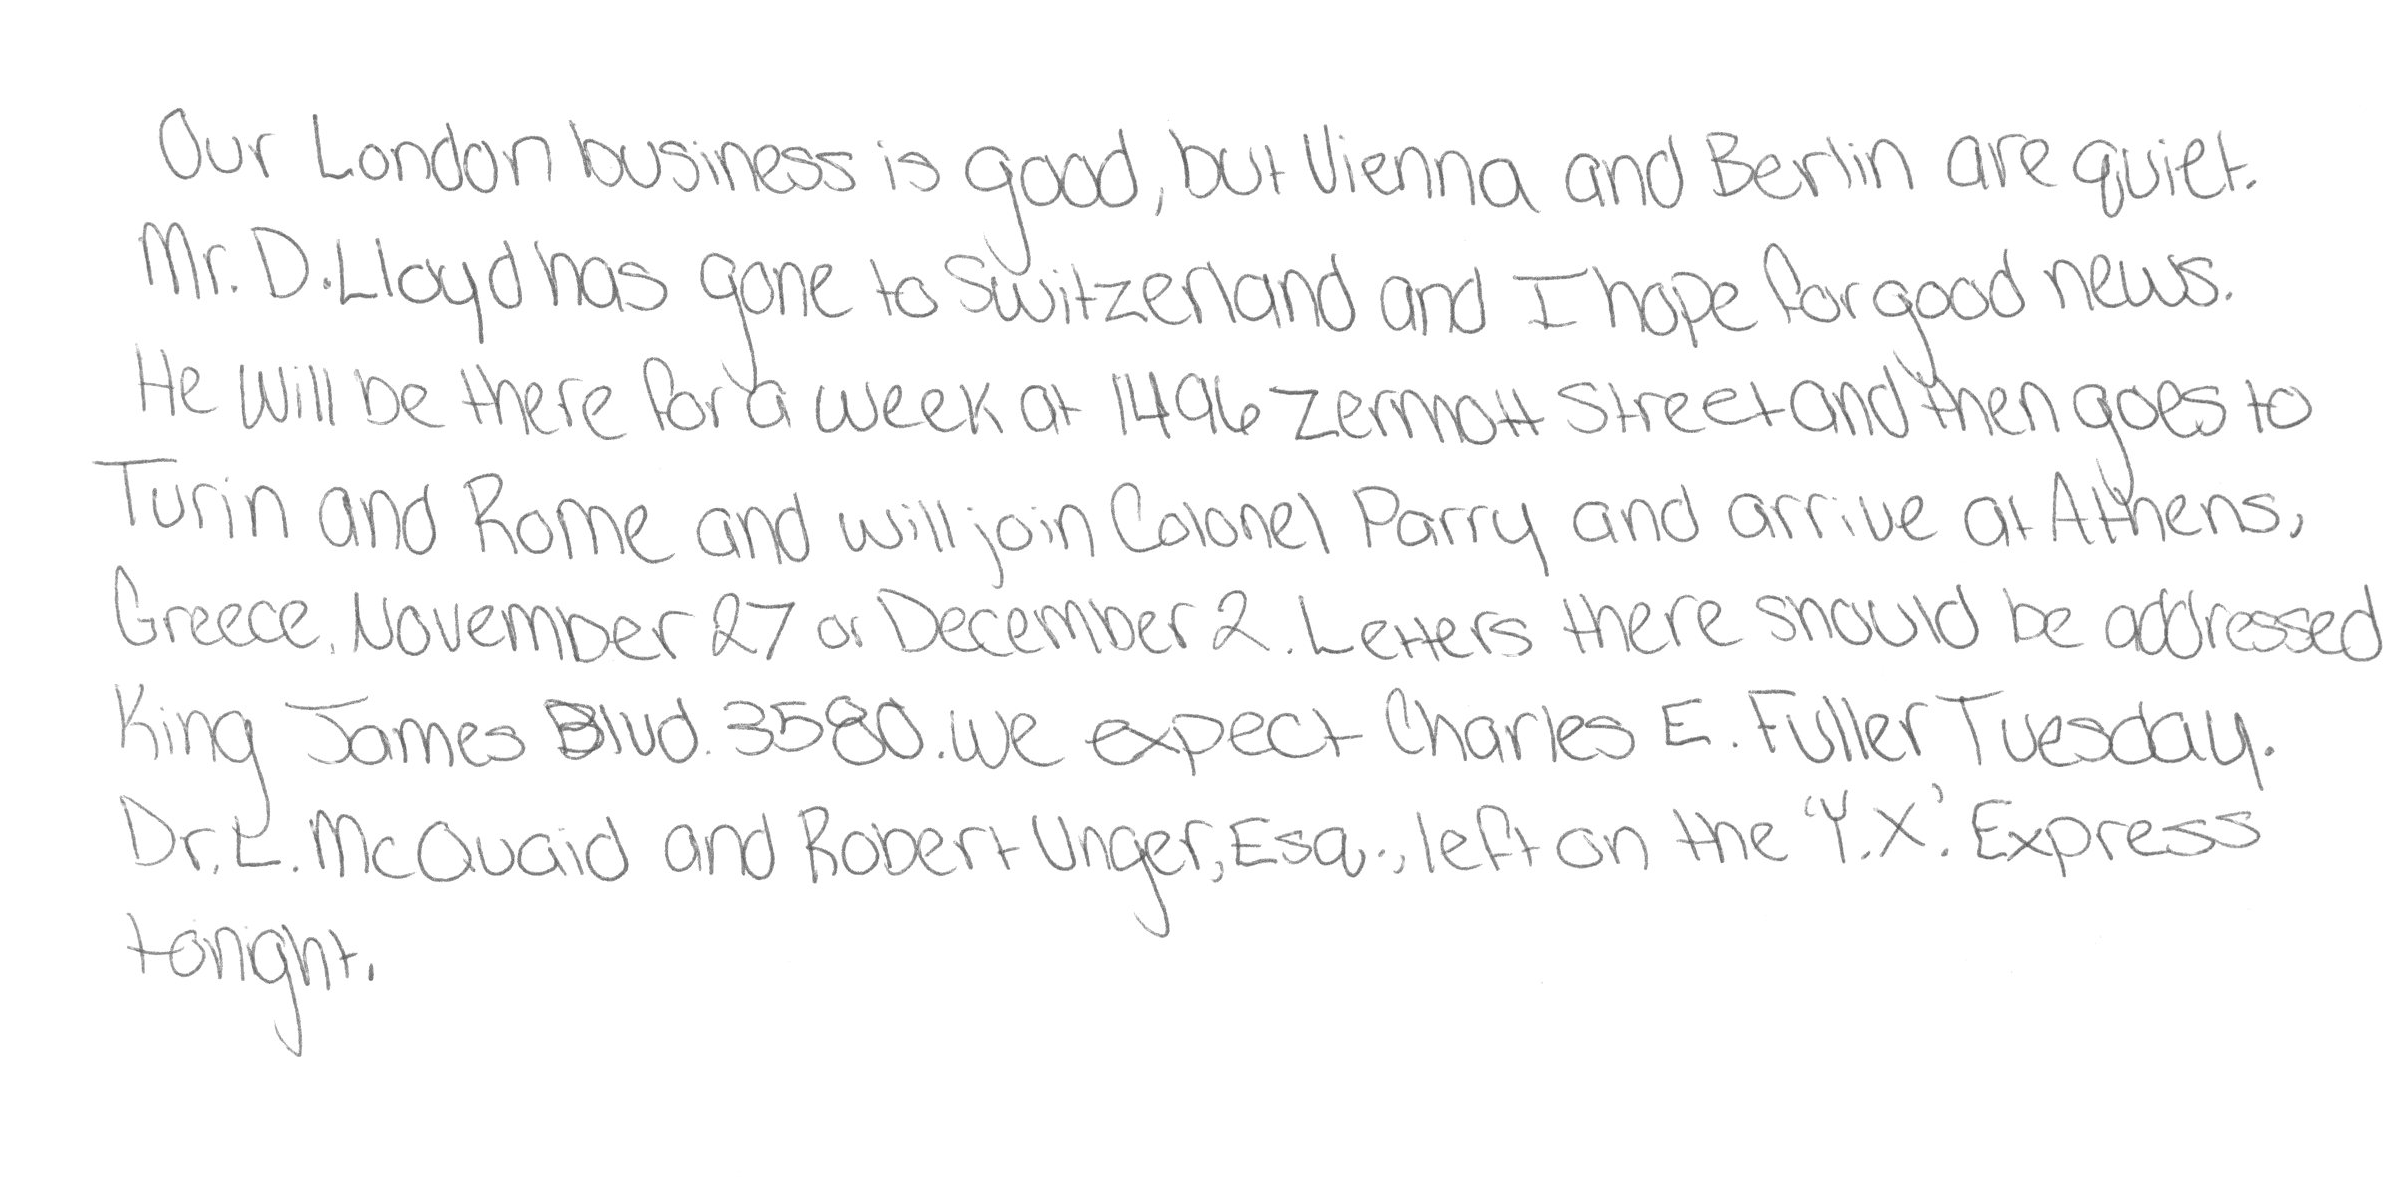 Our London business is good, but Vienna and Berlin are quiet.
Mr. D. Lloyd has gone to Switzerland and I hope for good news.
He will be there for a week at 1496 Zermott Street and then goes to
Turin and Rome and will join Colonel Parry and arrive at Athens,
Greece, November 27 or December 2. Letters there should be addressed
King James Blvd. 3580. We expect Charles E. Fuller Tuesday.
Dr. L. McQuaid and Robert Unger, Esq., left on the 'Y.X.' Express
tonight.